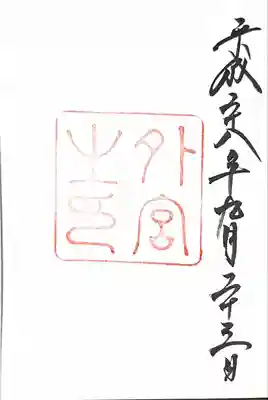 平成二十八年九月二十三日
外宮之印